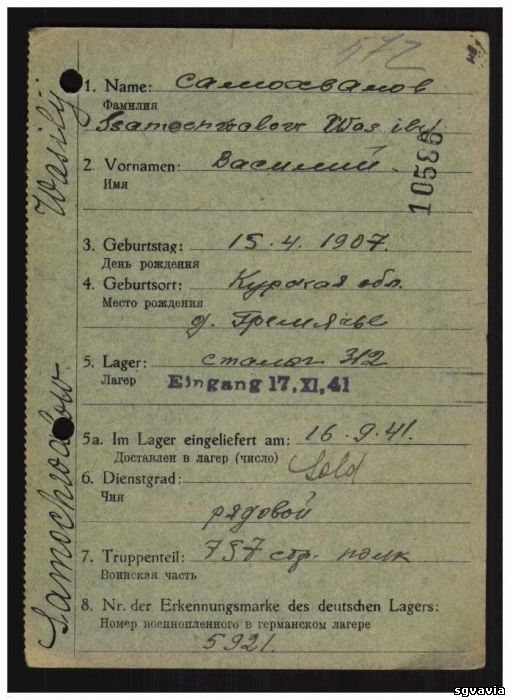 572
1. Name: Самохвалов
Фамилия
Ssamochwalow Wasily
2. Vornamen: Василий.
Имя
10586
3. Geburtstag: 15.4.1907.
День рождения
4. Geburtsort: Курская обл.
Место рождения
д. Гремячье
5. Lager: сталог 312
Лагер
Eingang 17.XI.41
5a. Im Lager eingeliefert am: 16.9.41.
Доставлен в лагер (число)
Sold
6. Dienstgrad:
Чин
рядовой
7. Truppenteil: 797 стр. полк
Воинская часть
8. Nr. der Erkennungsmarke des deutschen Lagers:
Номер военнопленного в германском лагере
5921.
Samochwalow Wasily
sgvavia